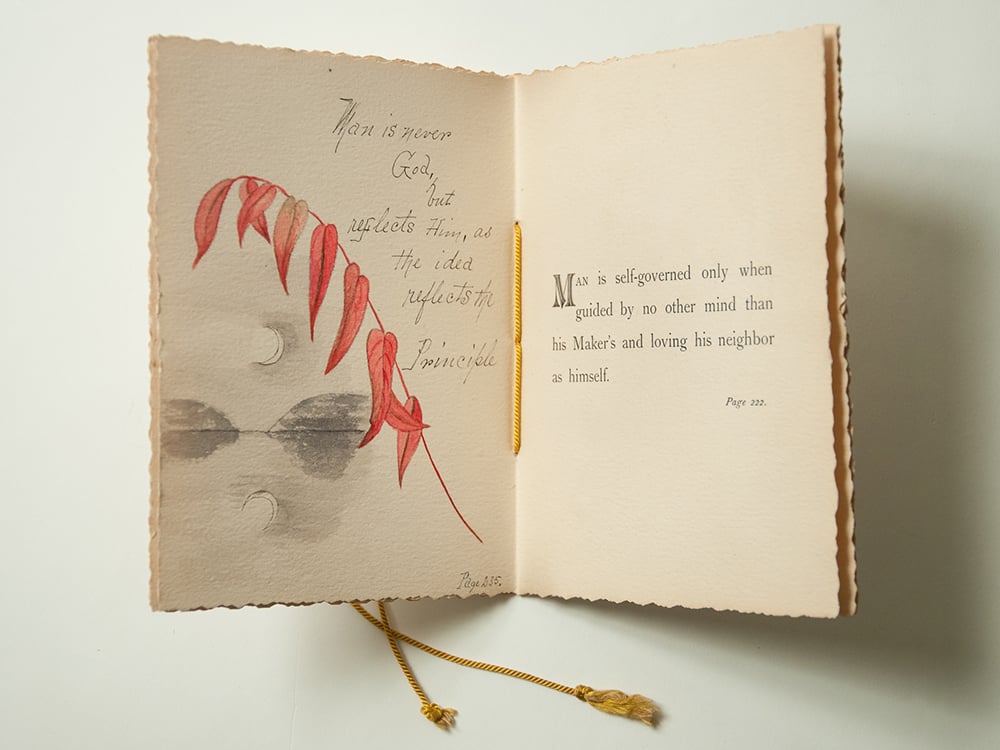 Man is never
God,
but
reflects Him, as
the idea
reflects the
Principle
Page 235.
Man is self-governed only when
guided by no other mind than
his Maker's and loving his neighbor
as himself.
Page 222.